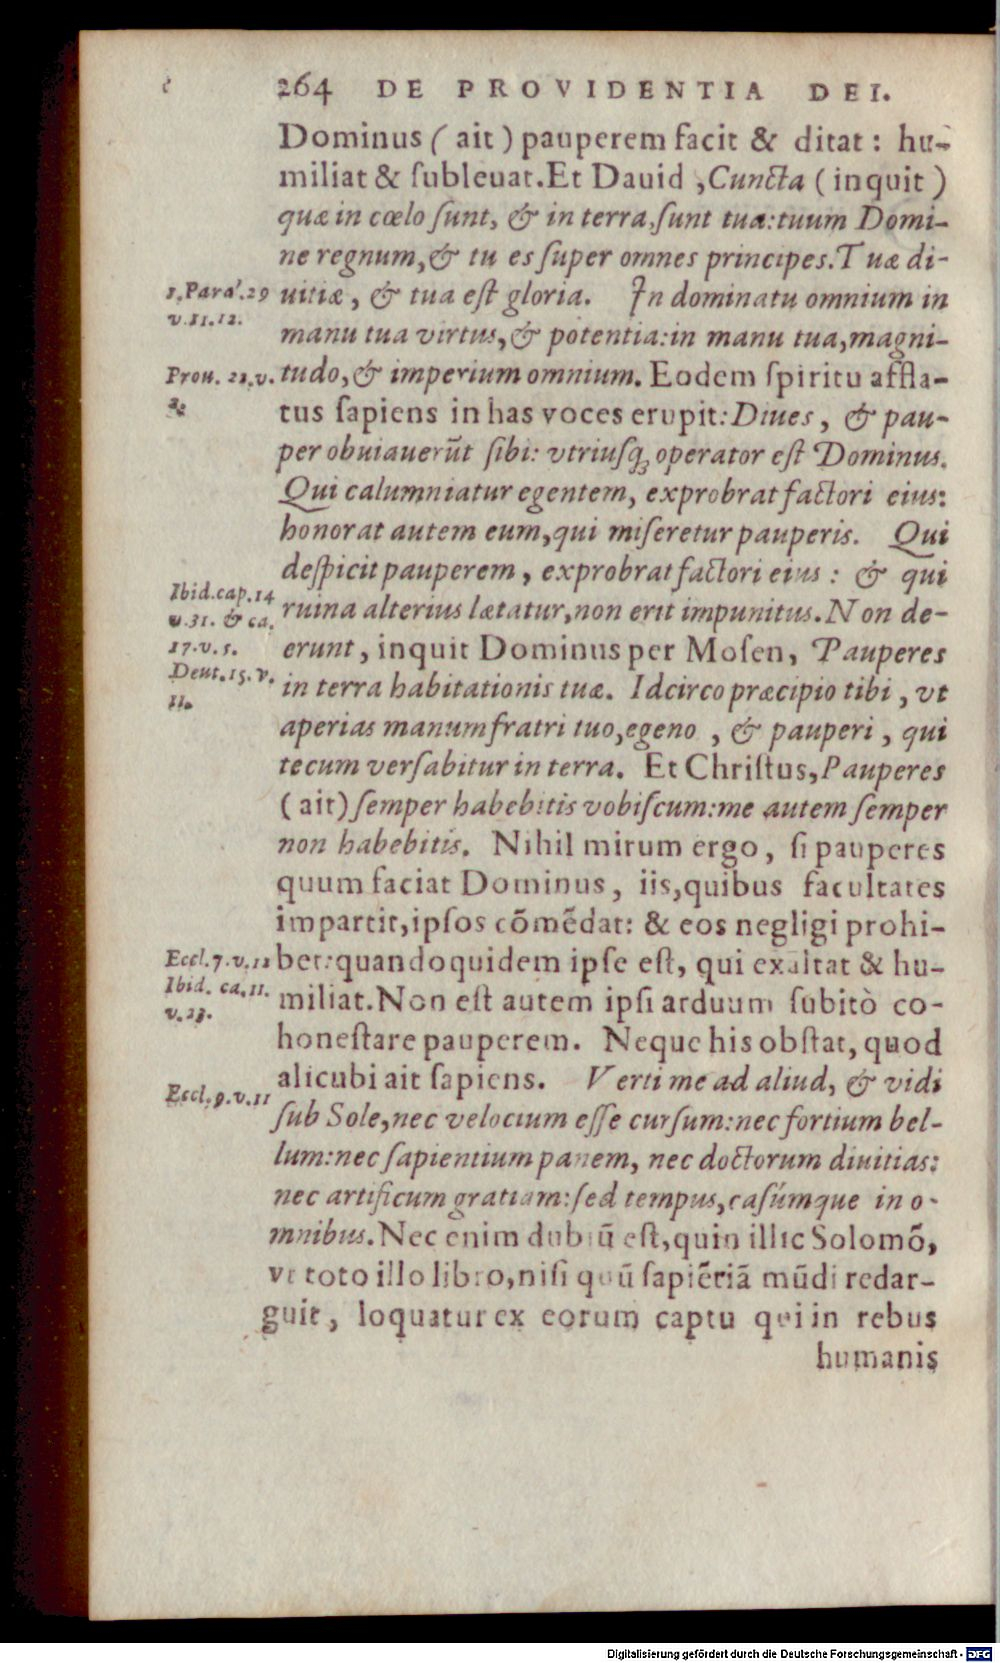 264 DE PROVIDENTIA DEI.
Dominus ( ait ) pauperem facit & ditat : hu-
miliat & ſubleuat. Et Dauid , Cuncta ( inquit )
quæ in cœlo ſunt, & in terra, ſunt tua: tuum Domi-
ne regnum, & tu es ſuper omnes principes. Tuæ di-
1. Para'. 29
v. 11. 12.
uitiæ, & tua eſt gloria. In dominatu omnium in
manu tua virtus, & potentia: in manu tua, magni-
Prou. 22. v.
2.
tudo, & imperium omnium. Eodem ſpiritu affla-
tus ſapiens in has voces erupit: Diues, & pau-
per obuiauerũt ſibi: vtriuſq́; operator eſt Dominus.
Qui calumniatur egentem, exprobrat factori eius:
honorat autem eum, qui miſeretur pauperis. Qui
deſpicit pauperem, exprobrat factori eius : & qui
Ibid. cap. 14
v. 31. & ca.
17. v. 5.
ruina alterius lætatur, non erit impunitus. Non de-
erunt, inquit Dominus per Moſen, Pauperes
Deut. 15. v.
11.
in terra habitationis tuæ. Idcirco præcipio tibi, vt
aperias manum fratri tuo, egeno , & pauperi , qui
tecum verſabitur in terra. Et Chriſtus, Pauperes
( ait) ſemper habebitis vobiſcum: me autem ſemper
non habebitis. Nihil mirum ergo, ſi pauperes
quum faciat Dominus, iis, quibus facultates
impartit, ipſos cõmẽdat: & eos negligi prohi-
Eccl. 7. v. 12
bet: quandoquidem ipſe eſt, qui exaltat & hu-
Ibid. ca. 11.
v. 23.
miliat. Non eſt autem ipſi arduum ſubitò co-
honeſtare pauperem. Neque his obſtat, quod
alicubi ait ſapiens. Verti me ad aliud, & vidi
Eccl. 9. v. 11
ſub Sole, nec velocium eſſe curſum: nec fortium bel-
lum: nec ſapientium panem, nec doctorum diuitias:
nec artificum gratiam: ſed tempus, caſúmque in o-
mnibus. Nec enim dubiũ eſt, quin illic Solomõ,
vt toto illo libro, niſi quũ ſapiẽtiã mũdi redar-
guit, loquatur ex eorum captu qui in rebus
humanis
Digitalisierung gefördert durch die Deutsche Forschungsgemeinschaft - DFG